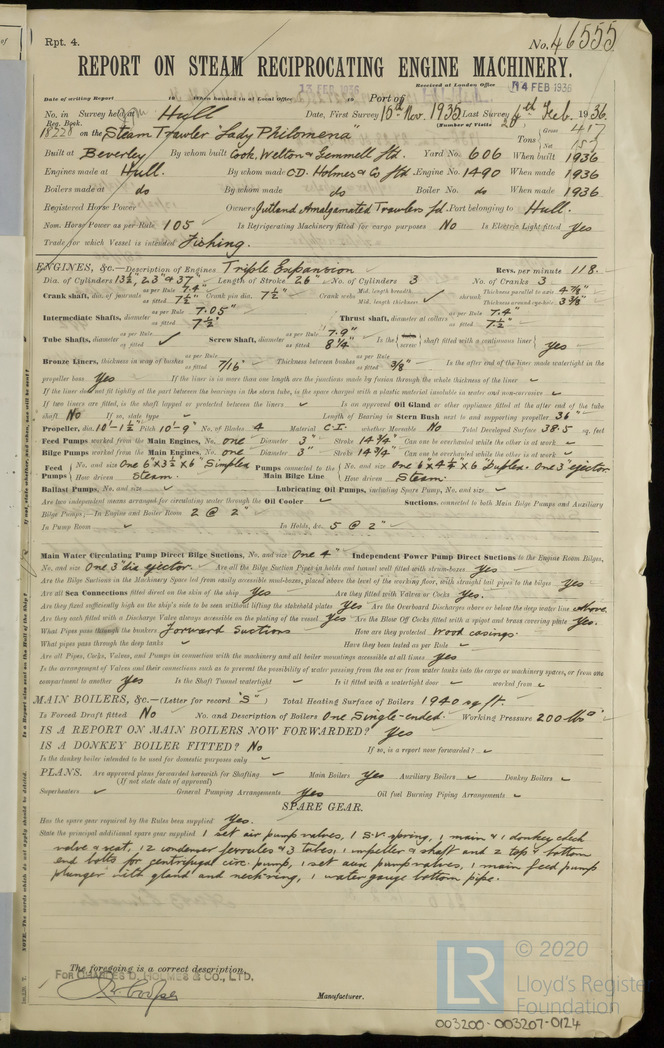 Rpt. 4.
No. 46555
REPORT ON STEAM RECIPROCATING ENGINE MACHINERY.
13 FEB 1936
Received at London Office 14 FEB 1936
Date of writing Report 19 When handed in at Local Office 19 Port of
No. in Survey held at Hull Date, First Survey 10th Nov. 1935 Last Survey Feb. 1936
Reg. Book. (Number of Visits
18228 on the Steam Trawler "Lady Philomena" Tons Gross 417 Net
Built at Beverley By whom built Cook, Welton & Gemmell Ltd. Yard No. 606 When built 1936
Engines made at Hull. By whom made C.D. Holmes & Co Ltd. Engine No. 1490 When made 1936
Boilers made at do By whom made do Boiler No. do When made 1936
Registered Horse Power Owners Jutland Amalgamated Trawlers Ld. Port belonging to Hull.
Nom. Horse Power as per Rule 105 Is Refrigerating Machinery fitted for cargo purposes No Is Electric Light fitted Yes
Trade for which Vessel is intended Fishing.
ENGINES, &c.—Description of Engines Triple Expansion Revs. per minute 118.
Dia. of Cylinders 13½, 23" & 37" Length of Stroke 26" No. of Cylinders 3 No. of Cranks 3
Crank shaft, dia. of journals as per Rule 7.4" as fitted 7½" Crank pin dia. 7½" Crank webs Mid. length breadth Mid. length thickness shrunk Thickness parallel to axis 4⅞" Thickness around eye-hole 3⅜"
Intermediate Shafts, diameter as per Rule 7.05" as fitted 7½" Thrust shaft, diameter at collars as per Rule 7.4" as fitted 7½"
Tube Shafts, diameter as per Rule as fitted Screw Shaft, diameter as per Rule 7.9" as fitted 8¼" Is the screw shaft fitted with a continuous liner Yes
Bronze Liners, thickness in way of bushes as per Rule as fitted 7/16" Thickness between bushes as per Rule as fitted 3/8" Is the after end of the liner made watertight in the
propeller boss Yes If the liner is in more than one length are the junctions made by fusion through the whole thickness of the liner
If the liner does not fit tightly at the part between the bearings in the stern tube, is the space charged with a plastic material insoluble in water and non-corrosive
If two liners are fitted, is the shaft lapped or protected between the liners Is an approved Oil Gland or other appliance fitted at the after end of the tube
shaft No If so, state type Length of Bearing in Stern Bush next to and supporting propeller 36"
Propeller, dia. 10'-1½" Pitch 10'-9" No. of Blades 4 Material C.I. whether Moveable No Total Developed Surface 38.5 sq. feet
Feed Pumps worked from the Main Engines, No. one Diameter 3" Stroke 14¾" Can one be overhauled while the other is at work
Bilge Pumps worked from the Main Engines, No. one Diameter 3" Stroke 14¾" Can one be overhauled while the other is at work
Feed Pumps No. and size One 6"x3½"x6" Simplex Pumps connected to the Main Bilge Line No. and size One 6"x4½"x6" Duplex. One 3" ejector
How driven Steam. How driven Steam.
Ballast Pumps, No. and size Lubricating Oil Pumps, including Spare Pump, No. and size
Are two independent means arranged for circulating water through the Oil Cooler Suctions, connected to both Main Bilge Pumps and Auxiliary
Bilge Pumps;—In Engine and Boiler Room 2 @ 2"
In Pump Room In Holds, &c. 5 @ 2"
Main Water Circulating Pump Direct Bilge Suctions, No. and size One 4" Independent Power Pump Direct Suctions to the Engine Room Bilges,
No. and size One 3" dia ejector. Are all the Bilge Suction Pipes in holds and tunnel well fitted with strum-boxes Yes
Are the Bilge Suctions in the Machinery Space led from easily accessible mud-boxes, placed above the level of the working floor, with straight tail pipes to the bilges Yes
Are all Sea Connections fitted direct on the skin of the ship Yes Are they fitted with Valves or Cocks Yes.
Are they fixed sufficiently high on the ship's side to be seen without lifting the stokehold plates Yes Are the Overboard Discharges above or below the deep water line above.
Are they each fitted with a Discharge Valve always accessible on the plating of the vessel Yes Are the Blow Off Cocks fitted with a spigot and brass covering plate Yes.
What Pipes pass through the bunkers Forward suctions How are they protected Wood casings.
What pipes pass through the deep tanks Have they been tested as per Rule
Are all Pipes, Cocks, Valves, and Pumps in connection with the machinery and all boiler mountings accessible at all times Yes
Is the arrangement of Valves and their connections such as to prevent the possibility of water passing from the sea or from water tanks into the cargo or machinery spaces, or from one
compartment to another Yes Is the Shaft Tunnel watertight Is it fitted with a watertight door worked from
MAIN BOILERS, &c.—(Letter for record "S") Total Heating Surface of Boilers 1940 sq ft.
Is Forced Draft fitted No No. and Description of Boilers One Single-ended Working Pressure 200 lbs
IS A REPORT ON MAIN BOILERS NOW FORWARDED? Yes
IS A DONKEY BOILER FITTED? No If so, is a report now forwarded?
Is the donkey boiler intended to be used for domestic purposes only
PLANS. Are approved plans forwarded herewith for Shafting Main Boilers Yes Auxiliary Boilers Donkey Boilers
(If not state date of approval)
Superheaters General Pumping Arrangements Yes Oil fuel Burning Piping Arrangements
SPARE GEAR.
Has the spare gear required by the Rules been supplied Yes.
State the principal additional spare gear supplied 1 set air pump valves, 1 S.V. spring, 1 main & 1 donkey check
valve & seat, 12 condenser ferrules & 3 tubes, 1 impeller & shaft and 2 top & bottom
end bolts for centrifugal circ. pump, 1 set aux pump valves, 1 main feed pump
plunger with gland and neck ring, 1 water gauge bottom pipe.
The foregoing is a correct description,
FOR CHARLES D. HOLMES & CO., LTD.
Manufacturer.
© 2020
LR Lloyd's Register
Foundation
003200-003207-0124